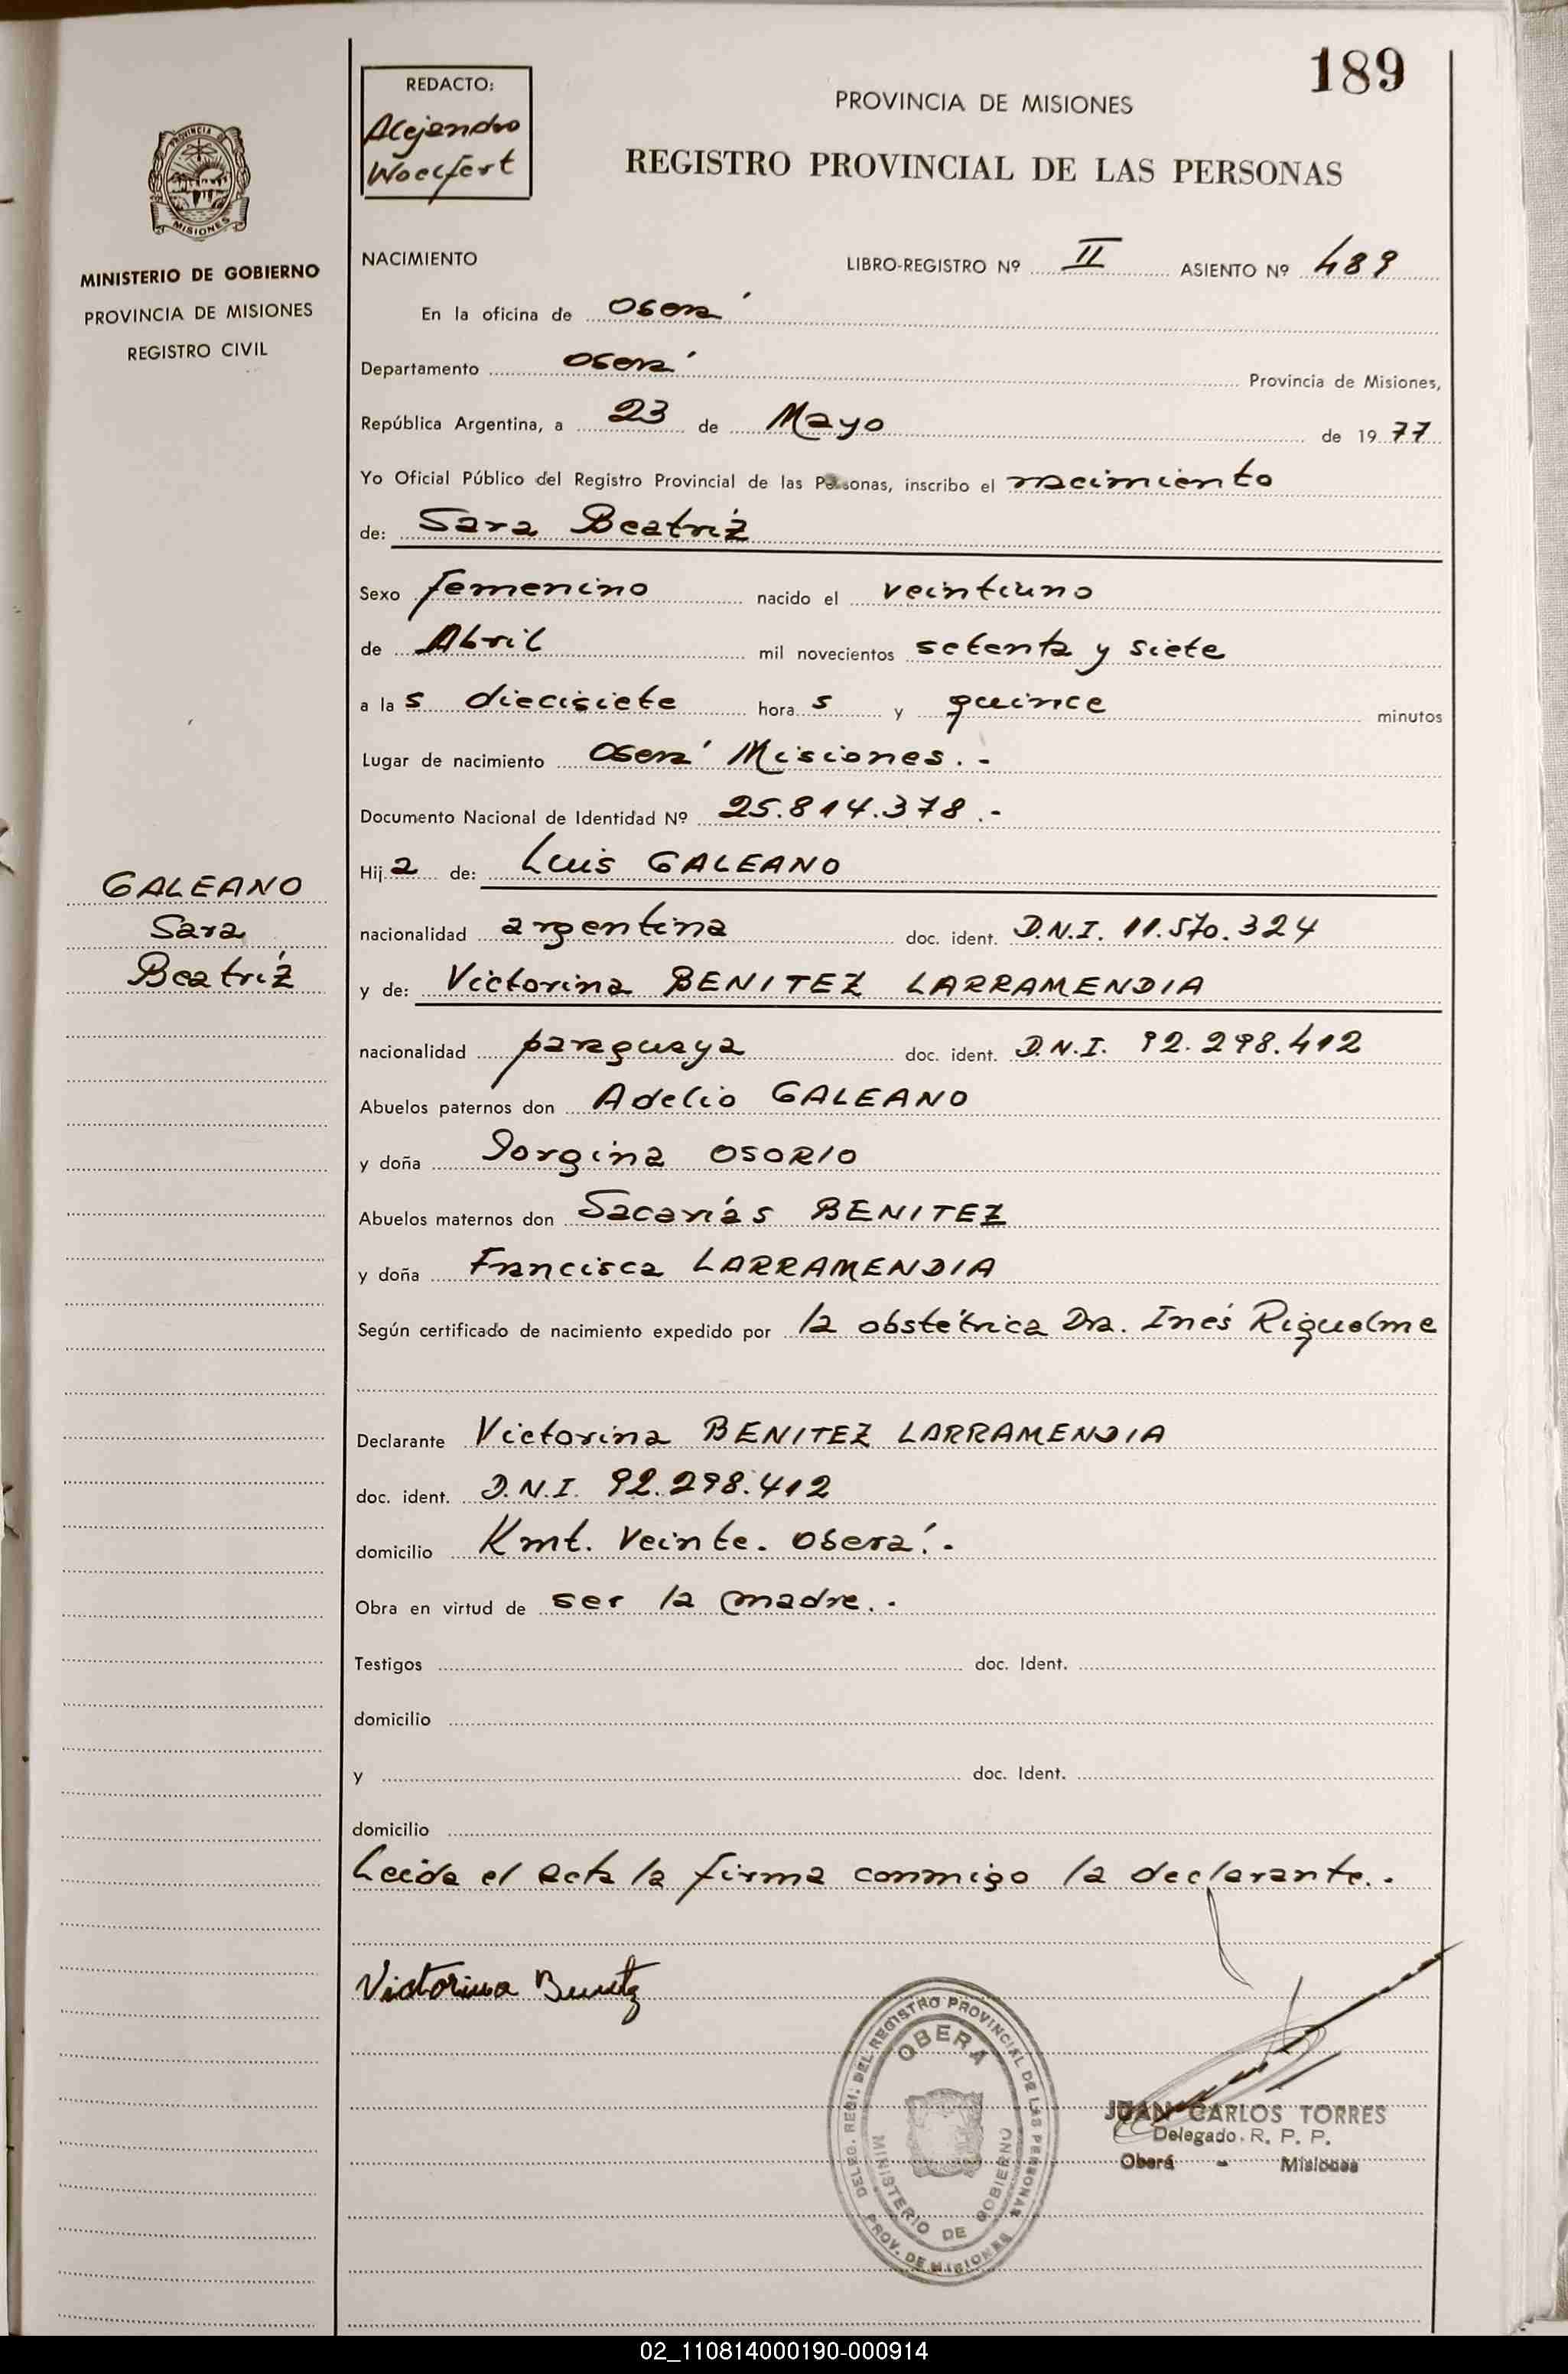 189
REDACTO:
Alejandro
Woelfert
PROVINCIA DE MISIONES
REGISTRO PROVINCIAL DE LAS PERSONAS
PROVINCIA
MISIONES
MINISTERIO DE GOBIERNO
PROVINCIA DE MISIONES
REGISTRO CIVIL
NACIMIENTO LIBRO-REGISTRO Nº II ASIENTO Nº 489
En la oficina de Oberá
Departamento Oberá Provincia de Misiones,
República Argentina, a 23 de Mayo de 1977
Yo Oficial Público del Registro Provincial de las Personas, inscribo el nacimiento
de: Sara Beatriz
Sexo femenino nacido el veintiuno
de Abril mil novecientos setenta y siete
a las diecisiete horas y quince minutos
Lugar de nacimiento Oberá Misiones.-
Documento Nacional de Identidad Nº 25.814.378.-
Hija de: Luis GALEANO
GALEANO
Sara
Beatriz
nacionalidad argentina doc. ident. D.N.I. 11.570.324
y de: Victorina BENITEZ LARRAMENDIA
nacionalidad paraguaya doc. ident. D.N.I. 92.298.412
Abuelos paternos don Adelio GALEANO
y doña Jorgina OSORIO
Abuelos maternos don Sacarías BENITEZ
y doña Francisca LARRAMENDIA
Según certificado de nacimiento expedido por la obstétrica Dra. Inés Riquelme
Declarante Victorina BENITEZ LARRAMENDIA
doc. ident. D.N.I. 92.298.412
domicilio Kmt. Veinte. Oberá.-
Obra en virtud de ser la madre.-
Testigos doc. Ident.
domicilio
y doc. Ident.
domicilio
Leída el acta la firma conmigo la declarante.-
Victorina Benitez
DELEG. REGI. DEL REGISTRO PROVINCIAL DE LAS PERSONAS
OBERA
MINISTERIO DE GOBIERNO
PROV. DE MISIONES
JUAN CARLOS TORRES
Delegado. R. P. P.
Oberá - Misiones
02_110814000190-000914